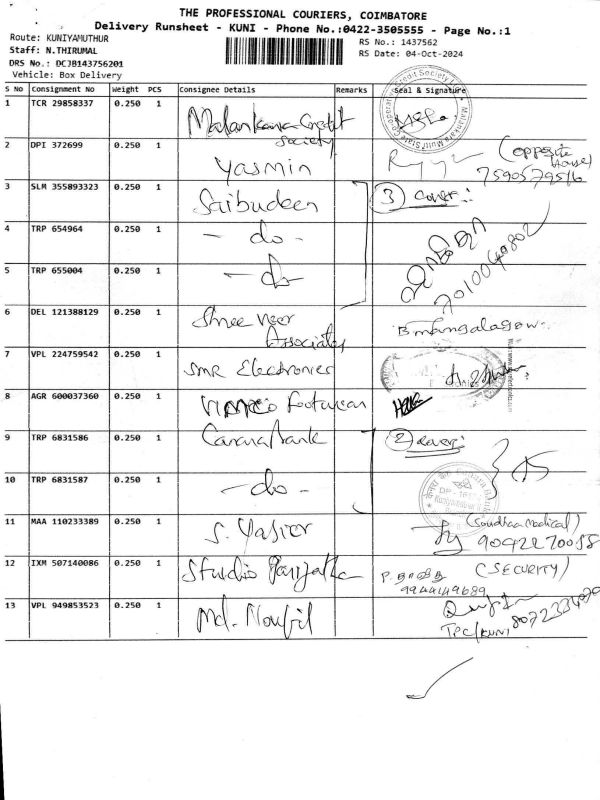 THE PROFESSIONAL COURIERS, COIMBATORE
Delivery Runsheet - KUNI - Phone No.:0422-3505555 - Page No.:1
Route: KUNIYAMUTHUR
RS No.: 1437562
Staff: N.THIRUMAL
RS Date: 04-Oct-2024
DRS No.: DCJB143756201
Vehicle: Box Delivery
S No Consignment No Weight PCS Consignee Details Remarks Seal & Signature
1 TCR 29858337 0.250 1 Malankara Credit Society
2 DPI 372699 0.250 1 Yasmin (opposite House) 7590579516
3 SLM 355893323 0.250 1 Saibudeen 3) cover:
4 TRP 654964 0.250 1 -do-
5 TRP 655004 0.250 1 -do- 7010040802
6 DEL 121388129 0.250 1 Shree veer Associates
7 VPL 224759542 0.250 1 SMR Electronics
8 AGR 600037360 0.250 1 Footwear
9 TRP 6831586 0.250 1 Canara Bank 2) cover:
10 TRP 6831587 0.250 1 -do-
11 MAA 110233389 0.250 1 S. Yasier (Soudhaa Medical)
12 IXM 507140086 0.250 1 Studio (SECURITY)
9944149689
13 VPL 949853523 0.250 1 Md. Noufil
TPC/KUNI